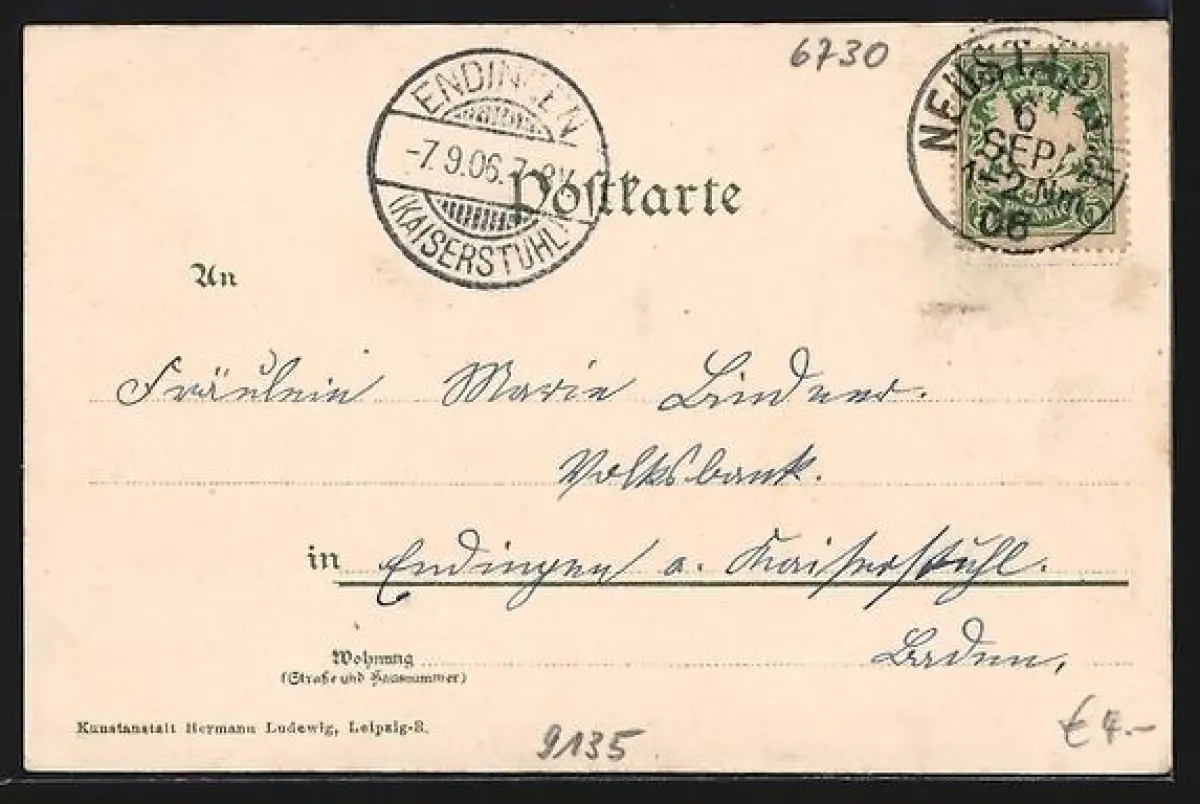 6730
ENDINGEN
-7.9.06.7-8V
(KAISERSTUHL)
NEUSTADT
6
SEP.
1-2 Nm
06
Postkarte
An
Fräulein Marie Lindner.
Volksbank.
in Endingen a. Kaiserstuhl.
Baden,
Wohnung
(Straße und Hausnummer)
Kunstanstalt Hermann Ludewig, Leipzig-R.
9135
€ 4.-